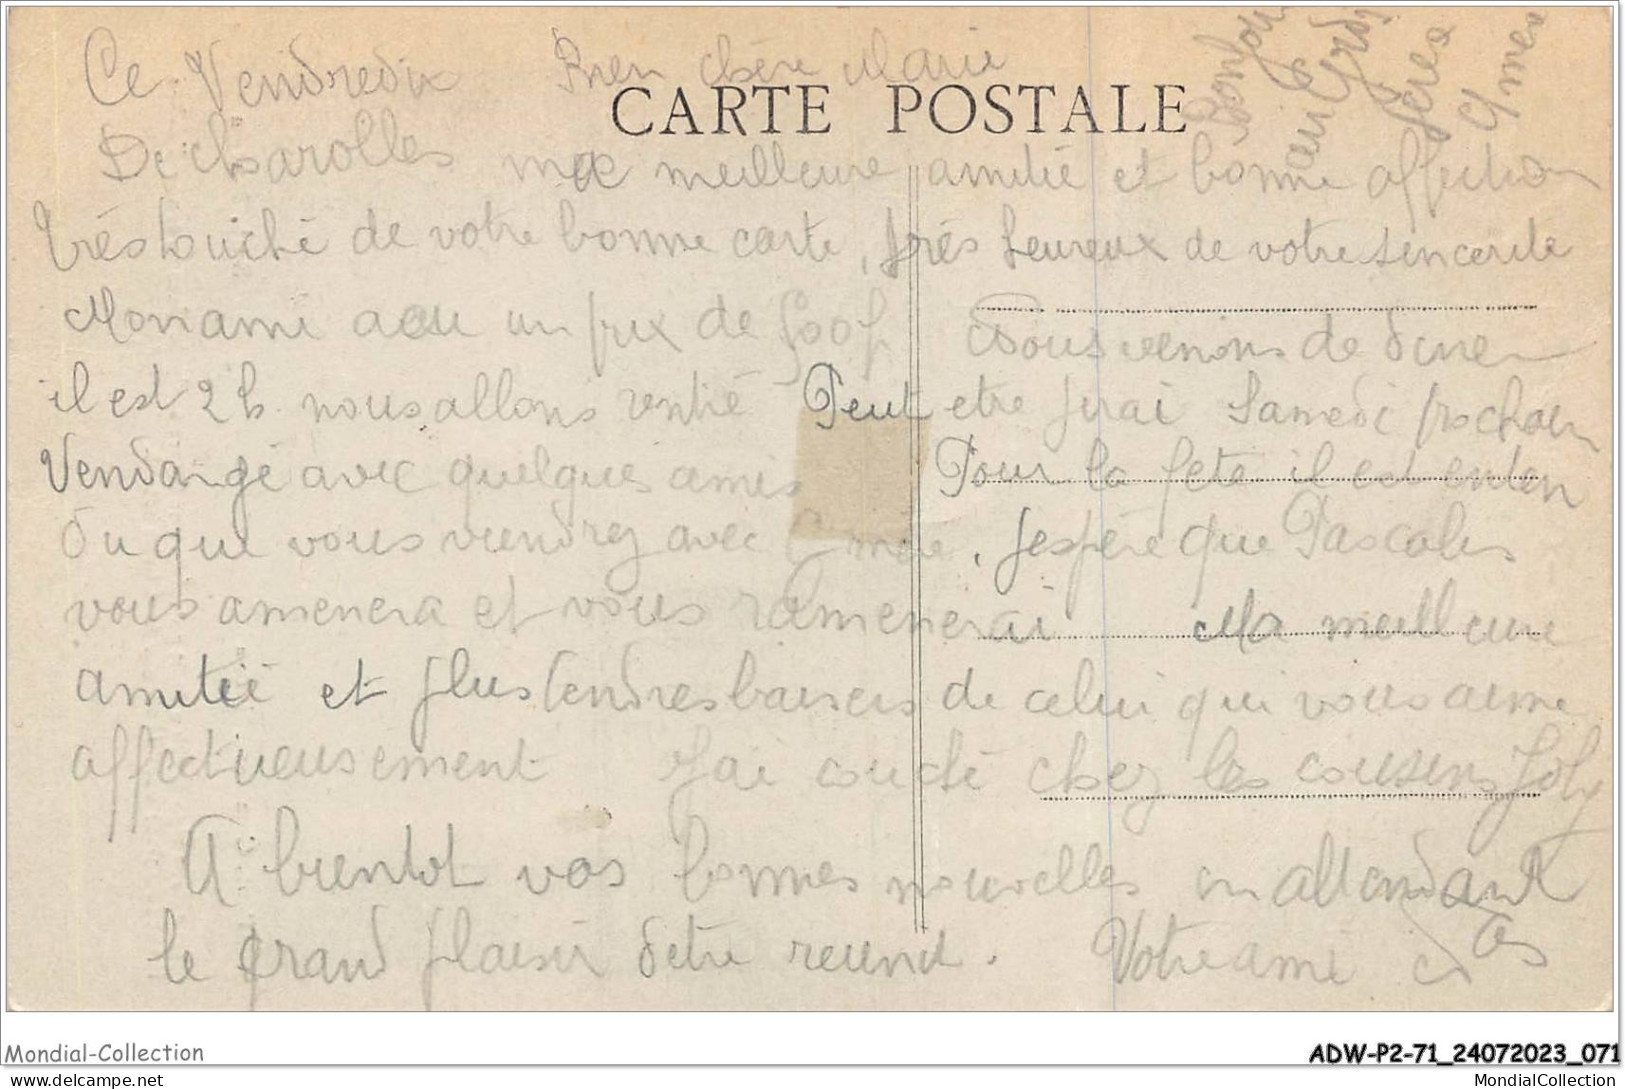 Ce Vendredi Bien chère Marie
CARTE POSTALE
Bonjour
aux
De Charolles ma meilleure amitié et bonne affection
très touché de votre bonne carte, très heureux de votre sincerite
Mon ami a eu un prix de 600f Nous venons de diner
il est 2 h. nous allons rentré Peut etre j'irai Samedi prochain
Vendangé avec quelques amis Pour la fete il est enten
du que vous viendrez avec mère, J'espère que Pascales
vous amenera et vous ramenerai Ma meilleure
amitié et plus tendres baisers de celui qui vous aime
affectueusement J'ai couché chez les cousins Joly
A bientot vos bonnes nouvelles en attendant
le grand plaisir d'etre reunit. Votre ami
Mondial-Collection
ADW-P2-71_24072023_071
www.delcampe.net
MondialCollection